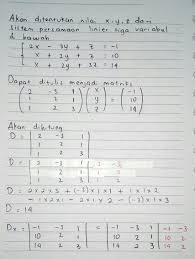 Akan ditentukan nilai x, y, z dari
sistem persamaan linier tiga variabel
di bawah
2x - 3y + z = -1
x + 2y + z = 10
x + 2y + 3z = 14
Dapat ditulis menjadi matriks
2 -3 1 x -1
1 2 1 y = 10
1 2 3 z 14
Akan dihitung
D = 2 -3 1
1 2 1
1 2 3
D = 2 -3 1 2 -3
1 2 1 1 2
1 2 3 1 2
D = 2x2x3 + (-3)x1x1 + 1x1x2
- 1x2x1 - 2x1x2 - (-3)x1x3
D = 14
Dx = -1 -3 1 = -1 -3 1 -1 -3
10 2 1 10 2 1 10 2
14 2 3 14 2 3 14 2